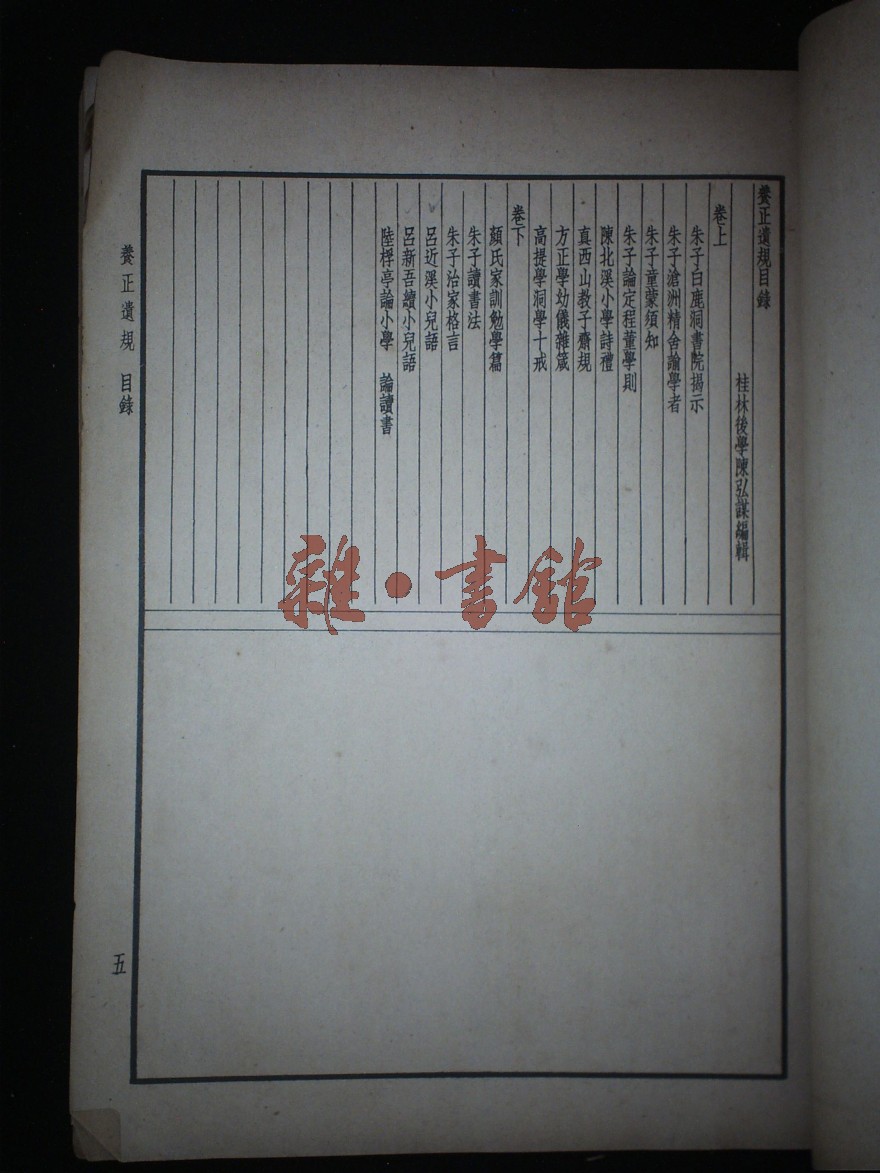 養正遺規目錄
桂林後學陳弘謀編輯
卷上
朱子白鹿洞書院揭示
朱子滄洲精舍諭學者
朱子童蒙須知
朱子論定程董學則
陳北溪小學詩禮
真西山教子齋規
方正學幼儀雜箴
高提學洞學十戒
卷下
顏氏家訓勉學篇
朱子讀書法
朱子治家格言
呂近溪小兒語
呂新吾續小兒語
陸桴亭論小學 論讀書
養正遺規 目錄
五
雜·書館